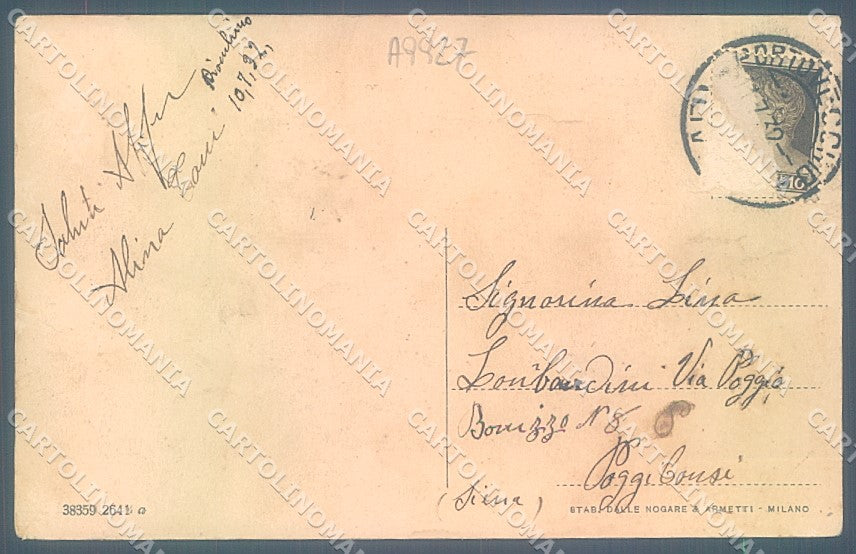 A9927
Saluti Aff
Alina
10,7,32,
Signorina Lina
Lombardini Via Poggio
Bonizzo N 8
Poggibonsi
(Siena)
38359 2641 a
STAB. DALLE NOGARE & ARMETTI - MILANO
CARTOLINOMANIA